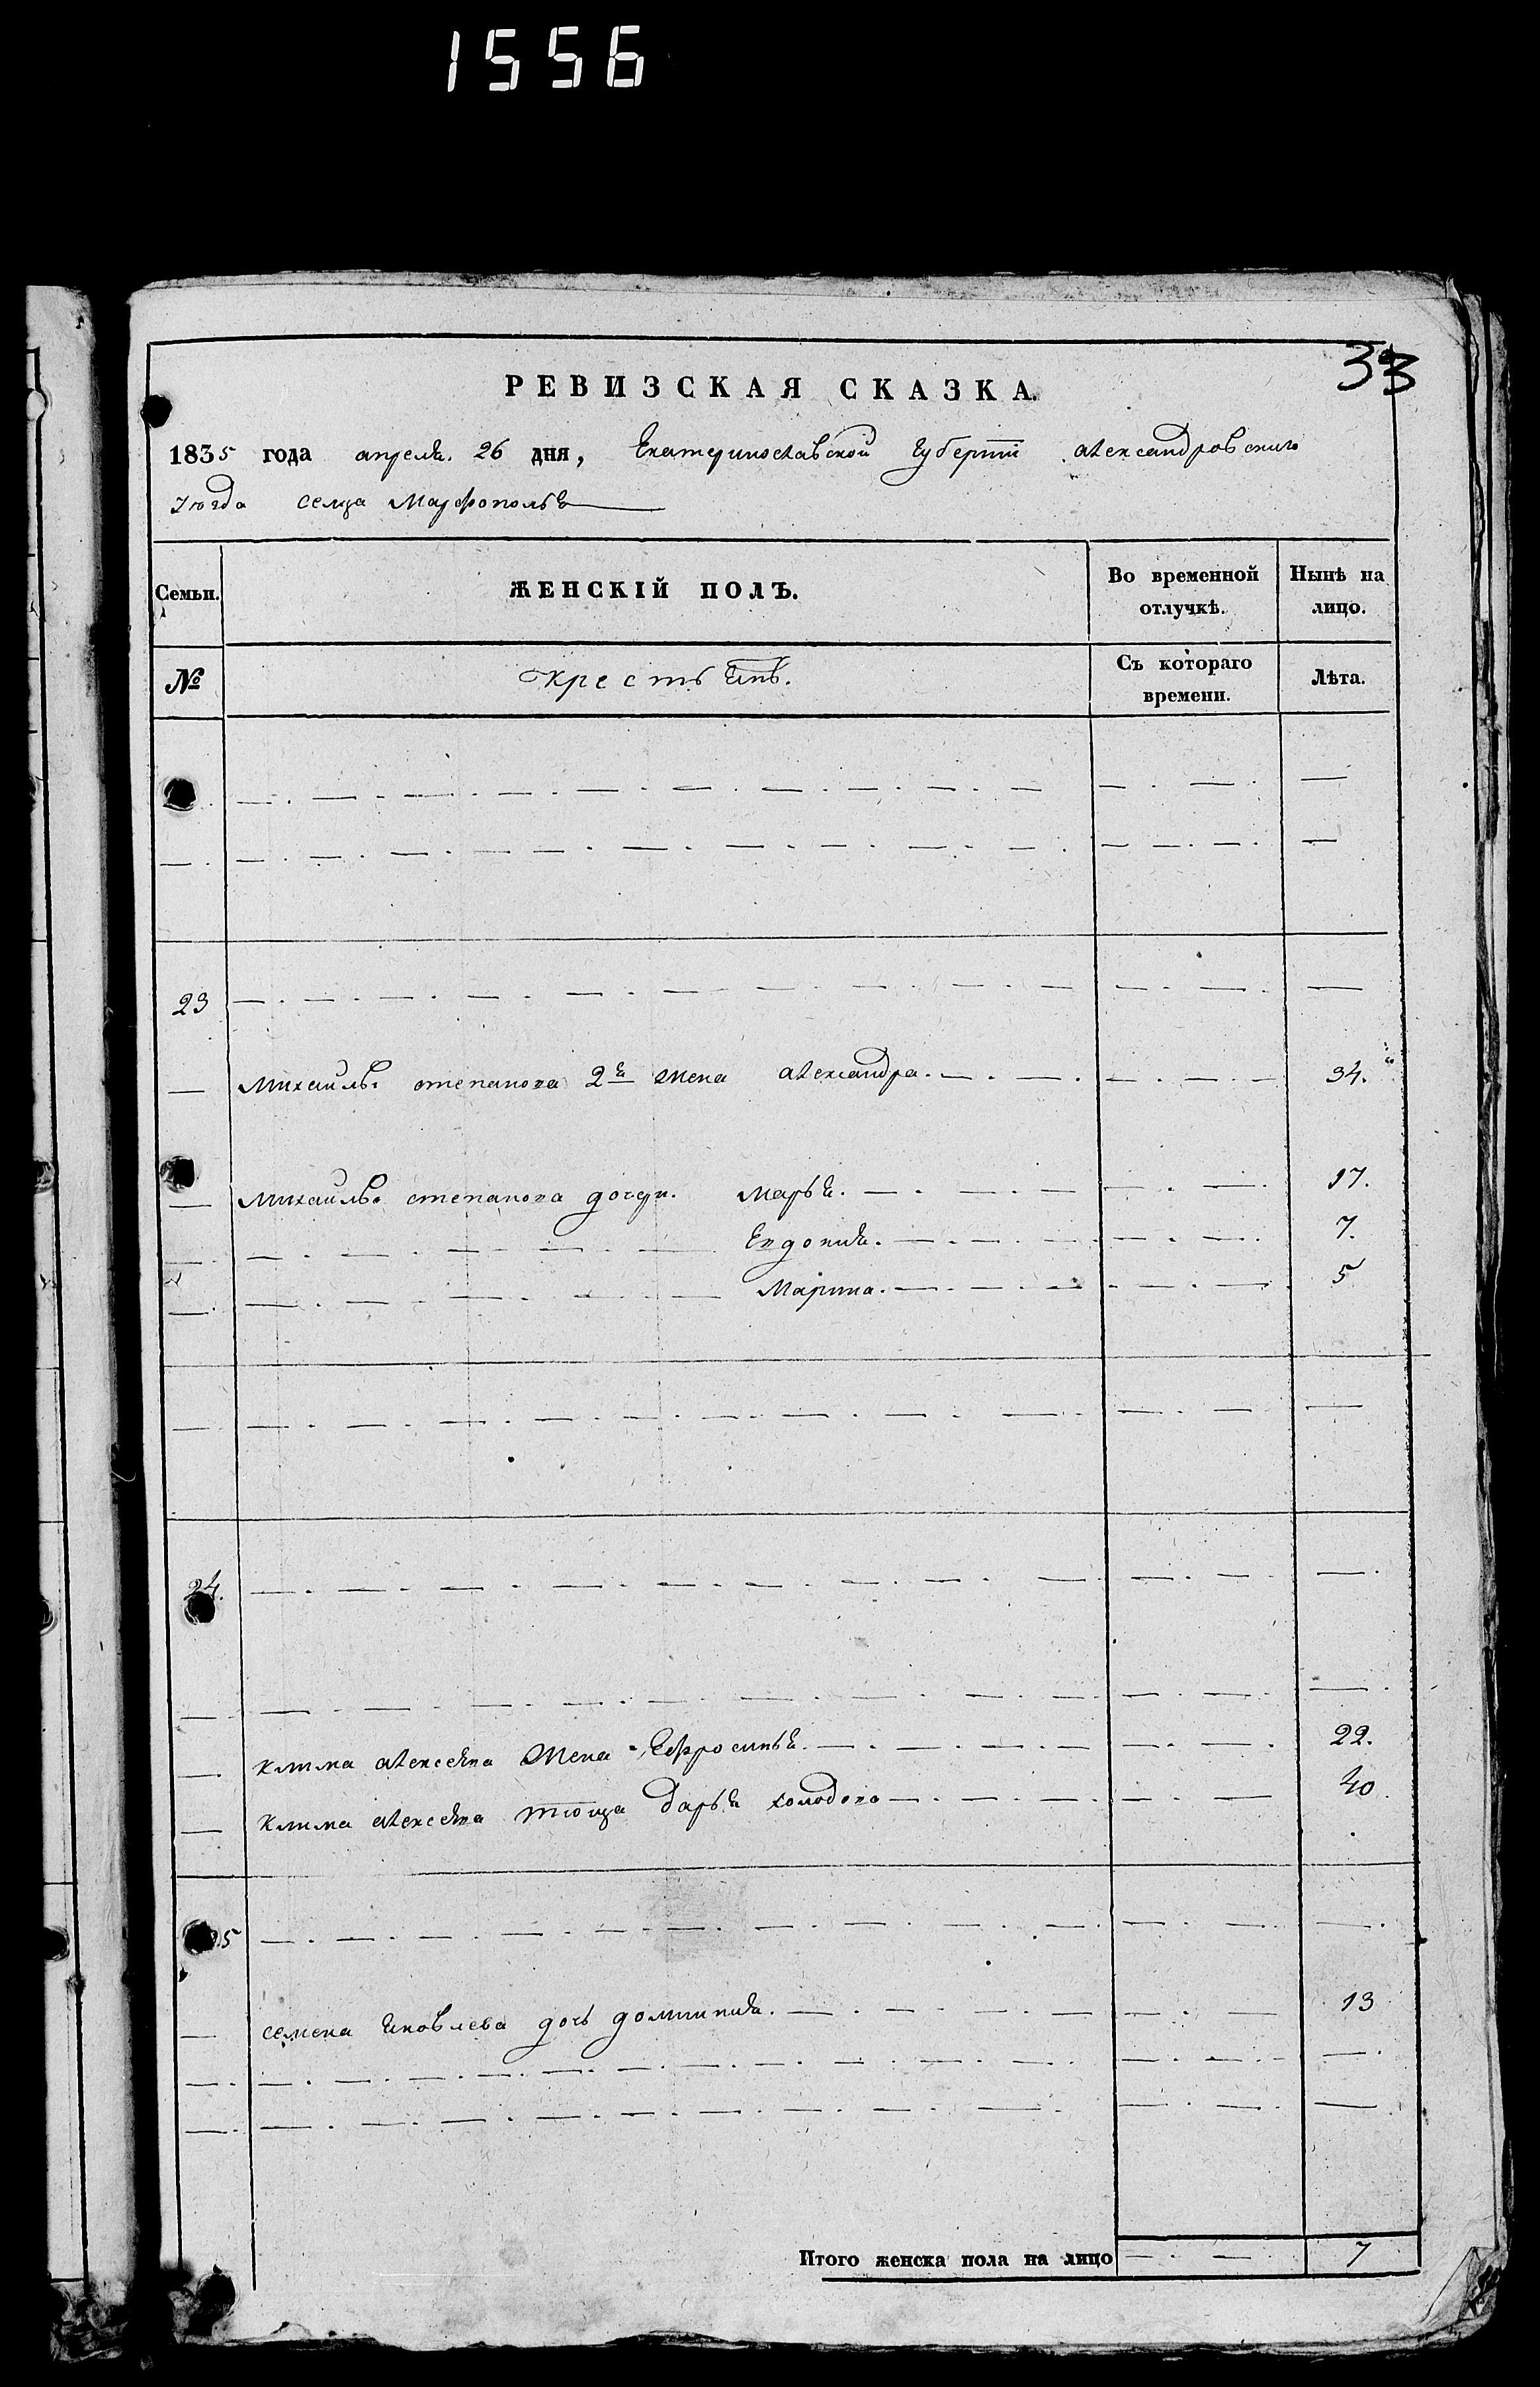 1556
33
РЕВИЗСКАЯ СКАЗКА.
1835 года апреля. 26 дня, Екатеринославской губернiи александровского
уюзда селца Марфополья
Семьи. ЖЕНСКІЙ ПОЛЪ. Во временной отлучкѣ. Нынѣ на лицо.
№ крестьянъ. Съ котораго времени. Лѣта.
23
михайлы степанова 2я жена александра. 34.
михайлы степанова дочери. марья. 17.
Евдокия. 7.
Марина. 5
24.
клима алексеева жена Ефросинья. 22.
клима алексеева тюща дарья холодова 40.
25
семена яковлева дочь домникия. 13
Итого женска пола на лицо 7